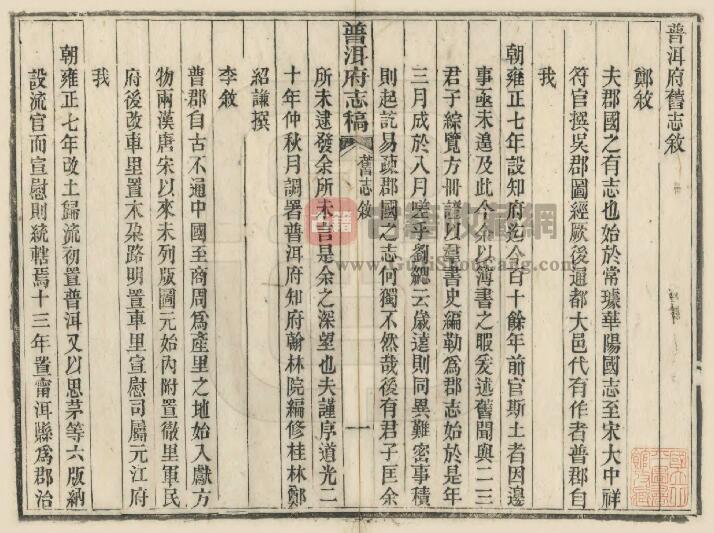 普洱府舊志敘
鄭敘
夫郡國之有志也始於常璩華陽國志至宋大中祥
符官撰吳郡圖經厥後通都大邑代有作者普郡自
我
朝雍正七年設知府迄今百十餘年前官斯土者因邊
事亟未遑及此今余以簿書之暇爰述舊聞與二三
君子綜覽方冊證以羣書史編勒為郡志始於是年
三月成於八月嗟乎劉勰云歲遠則同異難密事積
則起訖易疎郡國之志何獨不然哉後有君子匡余
普洱府志稿
舊志敘
一
所未逮發余所未言是余之深望也夫謹序道光二
十年仲秋月調署普洱府知府翰林院編修桂林鄭
紹謙撰
李敘
普郡自古不通中國至商周為產里之地始入獻方
物兩漢唐宋以來未列版圖元始內附置徹里軍民
府後改車里置木朶路明置車里宣慰司屬元江府
我
朝雍正七年改土歸流初置普洱又以思茅等六版納
設流官而宣慰則統轄焉十三年置甯洱縣為郡治
古籍收藏網
www.GuJiShouCang.com